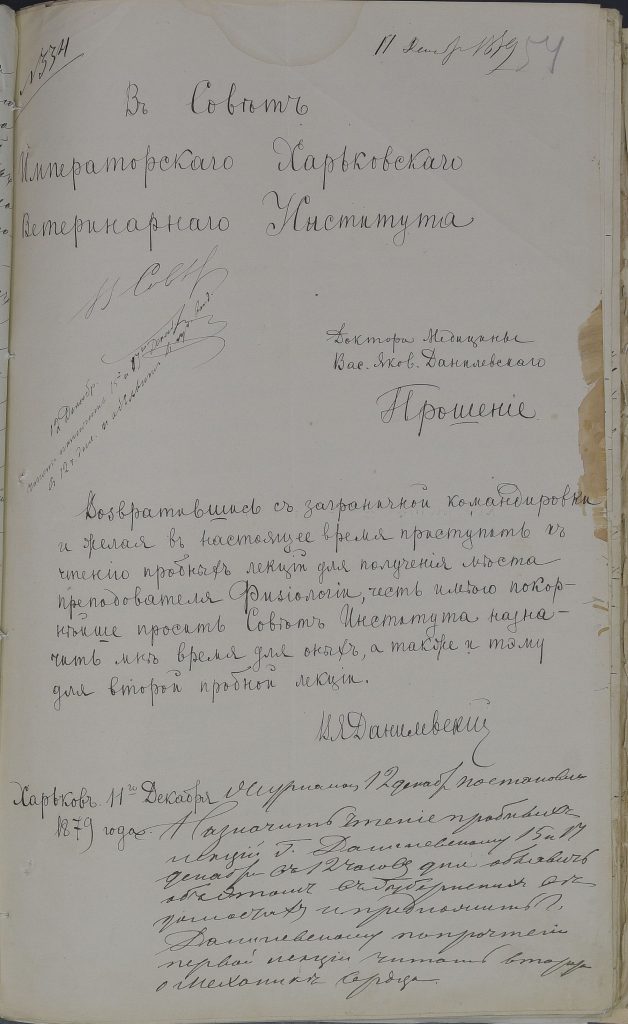 №334
11 Декабр 1879
54
Въ Совѣтъ
Императорскаго Харьковскаго
Ветеринарнаго Института
В Сов
12 Декабр.
Доктора Медицины
Вас. Яков. Данилевскаго
Прошеніе
Возвратившись съ заграничной командировки
и желая въ настоящее время приступить къ
чтенію пробныхъ лекцій для полученія мѣста
преподователя Физіологіи, честь имѣю покор-
нѣйше просить Совѣтъ Института назна-
чить мнѣ время для оныхъ, а также и тэму
для второй пробной лекціи.
ВЯДанилевскій
Харьковъ. 11го Декабря
1879 года.
Журналом 12 декабр постановил
Назначить чтеніе пробныхъ
лекцій Г. Данилевскому 15 и 17
декабря съ 12 часовъ дня объявить
объ этомъ въ Губернскихъ вѣ-
домостяхъ и предложить Г.
Данилевскому по прочтеніи
первой лекціи читать вторую
о Механикѣ сердца.